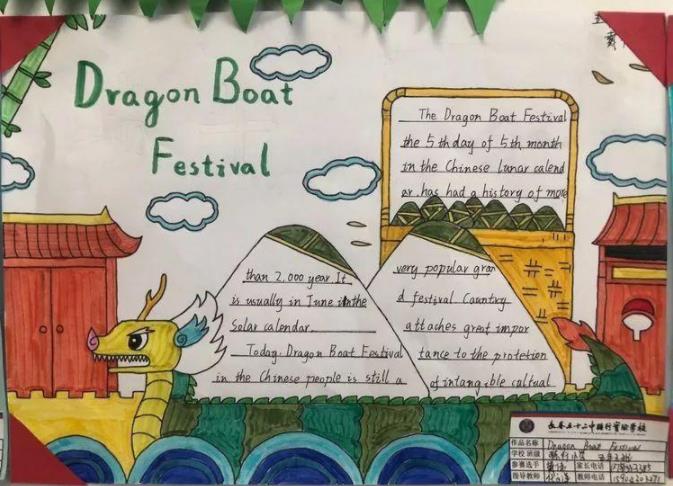 Dragon Boat
Festival
The Dragon Boat Festival
the 5th day of 5th month
in the Chinese lunar calend
ar. has had a history of more
than 2,000 year. It
is usually in June in the
Solar calendar.
Today. Dragon Boat Festival
in the Chinese people is still a
very popular gran
d festival Country
attaches great impor
tance to the protetion
of intangible caltual
作品名称 Dragon Boat Festival
学校班级
参赛选手 家长电话
指导教师 教师电话